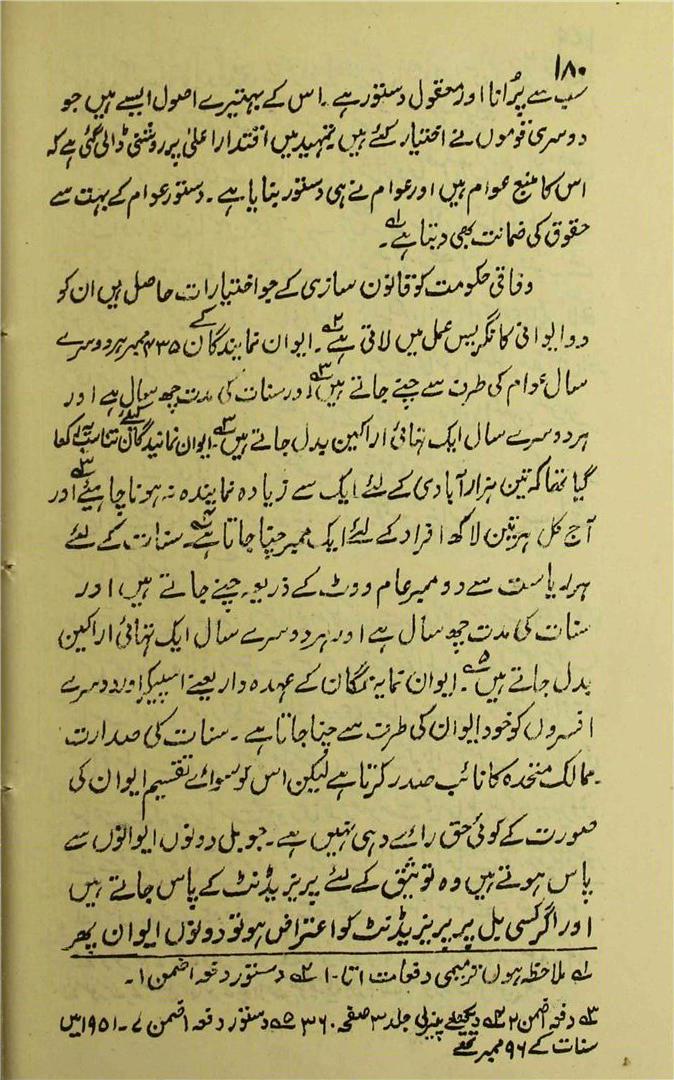 ۱۸۰
سب سے پُرانا اور معقول دستور ہے۔ اس کے بہتیرے اصول ایسے ہیں جو
دوسری قوموں نے اختیار کئے ہیں تمہید میں اقتدار اعلیٰ پر روشنی ڈالی گئی ہے کہ
اس کا منبع عوام ہیں اور عوام نے ہی دستور بنایا ہے۔ دستور عوام کے بہت سے
حقوق کی ضمانت بھی دیتا ہے۱؎۔
وفاقی حکومت کو قانون سازی کے جو اختیارات حاصل ہیں ان کو
دو ایوانی کانگریس عمل میں لاتی ہے۲؎۔ ایوان نمایندگان کے ۴۳۵ ممبر ہر دوسرے
سال عوام کی طرف سے چنے جاتے ہیں۳؎ اور سنات کی مدت چھ سال ہے اور
ہر دوسرے سال ایک تہائی اراکین بدل جاتے ہیں۳؎۔ ایوان نمایندگان کیلئے تناسب یہ رکھا
گیا تھا کہ تین ہزار آبادی کے لئے ایک سے زیادہ نمایندہ نہ ہونا چاہیئے۳؎ اور
آج کل ہر تین لاکھ افراد کے لئے ایک ممبر چنا جاتا ہے۴؎۔ سنات کے لئے
ہر ریاست سے دو ممبر عام ووٹ کے ذریعہ چنے جاتے ہیں اور
سنات کی مدت چھ سال ہے اور ہر دوسرے سال ایک تہائی اراکین
بدل جاتے ہیں۵؎۔ ایوان نمایندگان کے عہدہ دار یعنے اسپیکر اور دوسرے
افسروں کو خود ایوان کی طرف سے چنا جاتا ہے۔ سنات کی صدارت
ممالک متحدہ کا نائب صدر کرتا ہے لیکن اس کو سوائے تقسیم ایوان کی
صورت کے کوئی حق رائے دہی نہیں ہے۔ جو بل دونوں ایوانوں سے
پاس ہوتے ہیں وہ توثیق کے لئے پریزیڈنٹ کے پاس جاتے ہیں
اور اگر کسی بل پر پریزیڈنٹ کو اعتراض ہو تو دونوں ایوان پھر
۱؎ ملاحظہ ہوں ترمیمی دفعات ۱ تا ۱۰ ۲؎ دستور دفعہ ۱ ضمن ۱۔
۳؎ دفعہ ۱ ضمن ۲ ۴؎ دیکھئے جلد ۳ صفحہ ۳۶۰ ۵؎ دستور دفعہ ۱ ضمن ۷۔ ۱۹۵۱ میں
سنات کے ۹۶ ممبر تھے